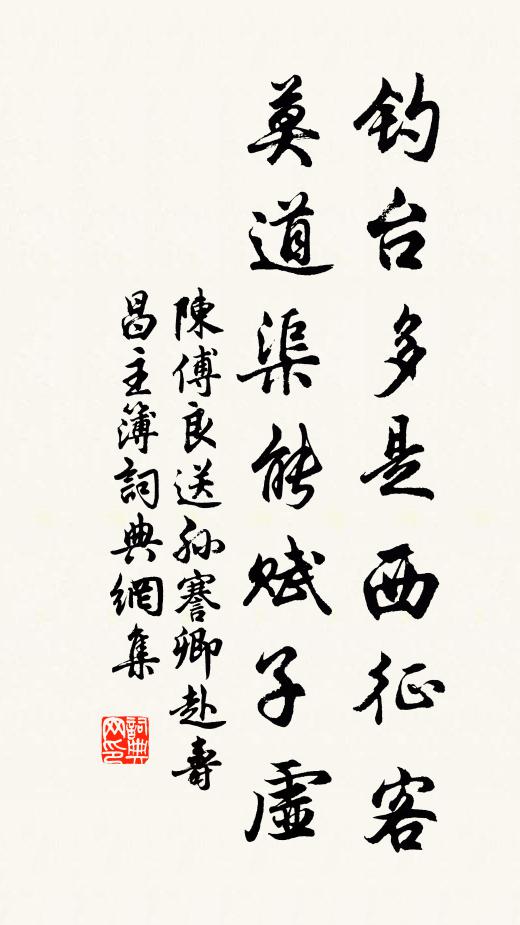 钓台多是西征客
莫道渠能赋子虚
陳傅良送孙謇卿赴壽
昌主簿詞典網集
詞典网印